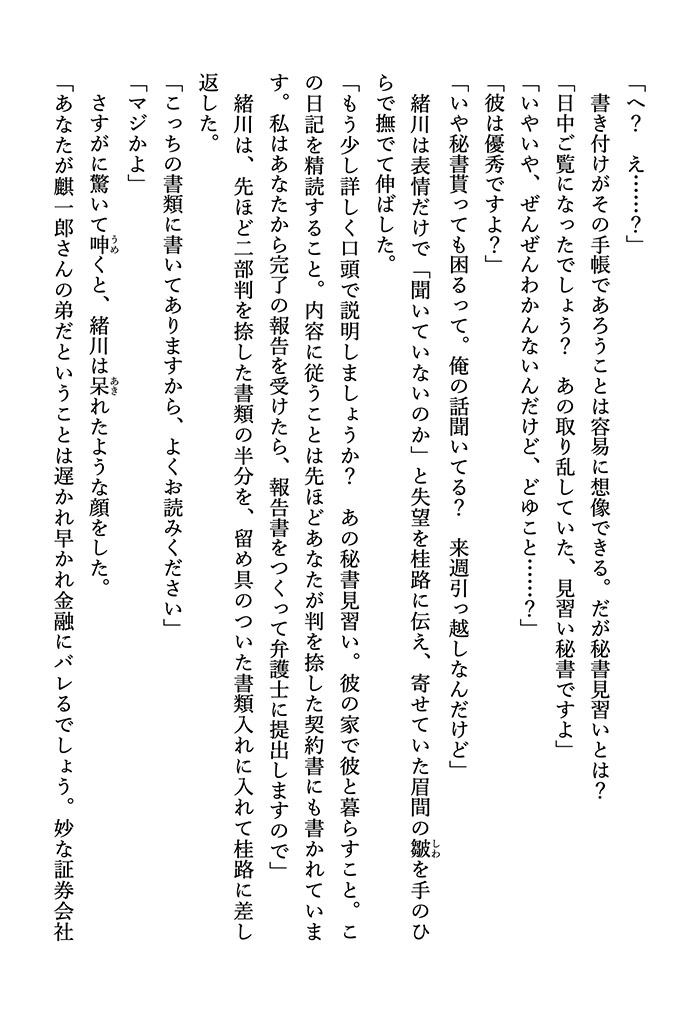 「へ？　え……？」
　書き付けがその手帳であろうことは容易に想像できる。だが秘書見習いとは？
「日中ご覧になったでしょう？　あの取り乱していた、見習い秘書ですよ」
「いやいや、ぜんぜんわかんないんだけど、どゆこと……？」
「彼は優秀ですよ？」
「いや秘書貰っても困るって。俺の話聞いてる？　来週引っ越しなんだけど」
　緒川は表情だけで「聞いていないのか」と失望を桂路に伝え、寄せていた眉間の皺を手のひ
らで撫でて伸ばした。
「もう少し詳しく口頭で説明しましょうか？　あの秘書見習い。彼の家で彼と暮らすこと。こ
の日記を精読すること。内容に従うことは先ほどあなたが判を捺した契約書にも書かれていま
す。私はあなたから完了の報告を受けたら、報告書をつくって弁護士に提出しますので」
　緒川は、先ほど二部判を捺した書類の半分を、留め具のついた書類入れに入れて桂路に差し
返した。
「こっちの書類に書いてありますから、よくお読みください」
「マジかよ」
　さすがに驚いて呻くと、緒川は呆れたような顔をした。
「あなたが麒一郎さんの弟だということは遅かれ早かれ金融にバレるでしょう。妙な証券会社